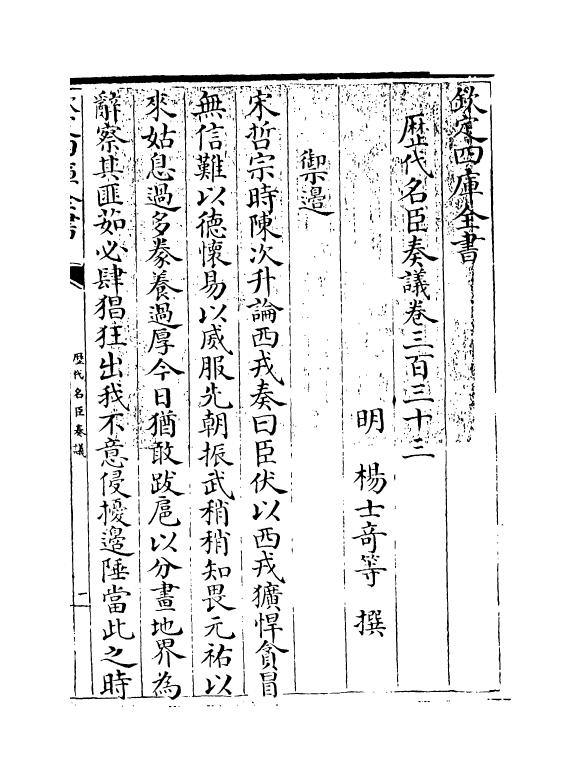 欽定四庫全書
歷代名臣奏議卷三百三十三
明 楊士竒等 撰
禦邊
宋哲宗時陳次升論西戎奏曰臣伏以西戎獷悍貪冒
無信難以德懷易以威服先朝振武稍稍知畏元祐以
來姑息過多豢養過厚今日猶敢跋扈以分畫地界為
辭察其匪茹必肆猖狂出我不意侵擾邊陲當此之時
歷代名臣奏議
一